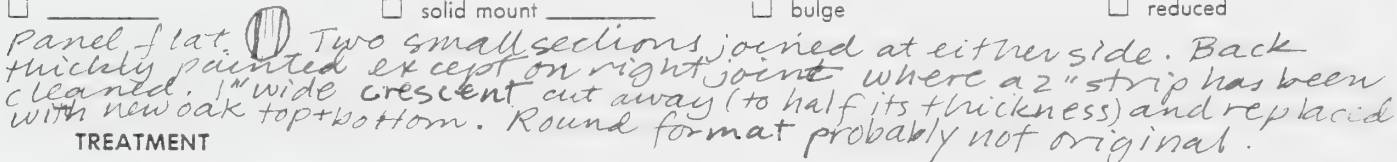 ☐ ________ ☐ solid mount ________ ☐ bulge ☐ reduced
Panel flat. Two small sections joined at either side. Back
thickly painted except on right joint where a 2" strip has been
cleaned. 1" wide crescent cut away (to half its thickness) and replaced
with new oak top + bottom. Round format probably not original.
TREATMENT